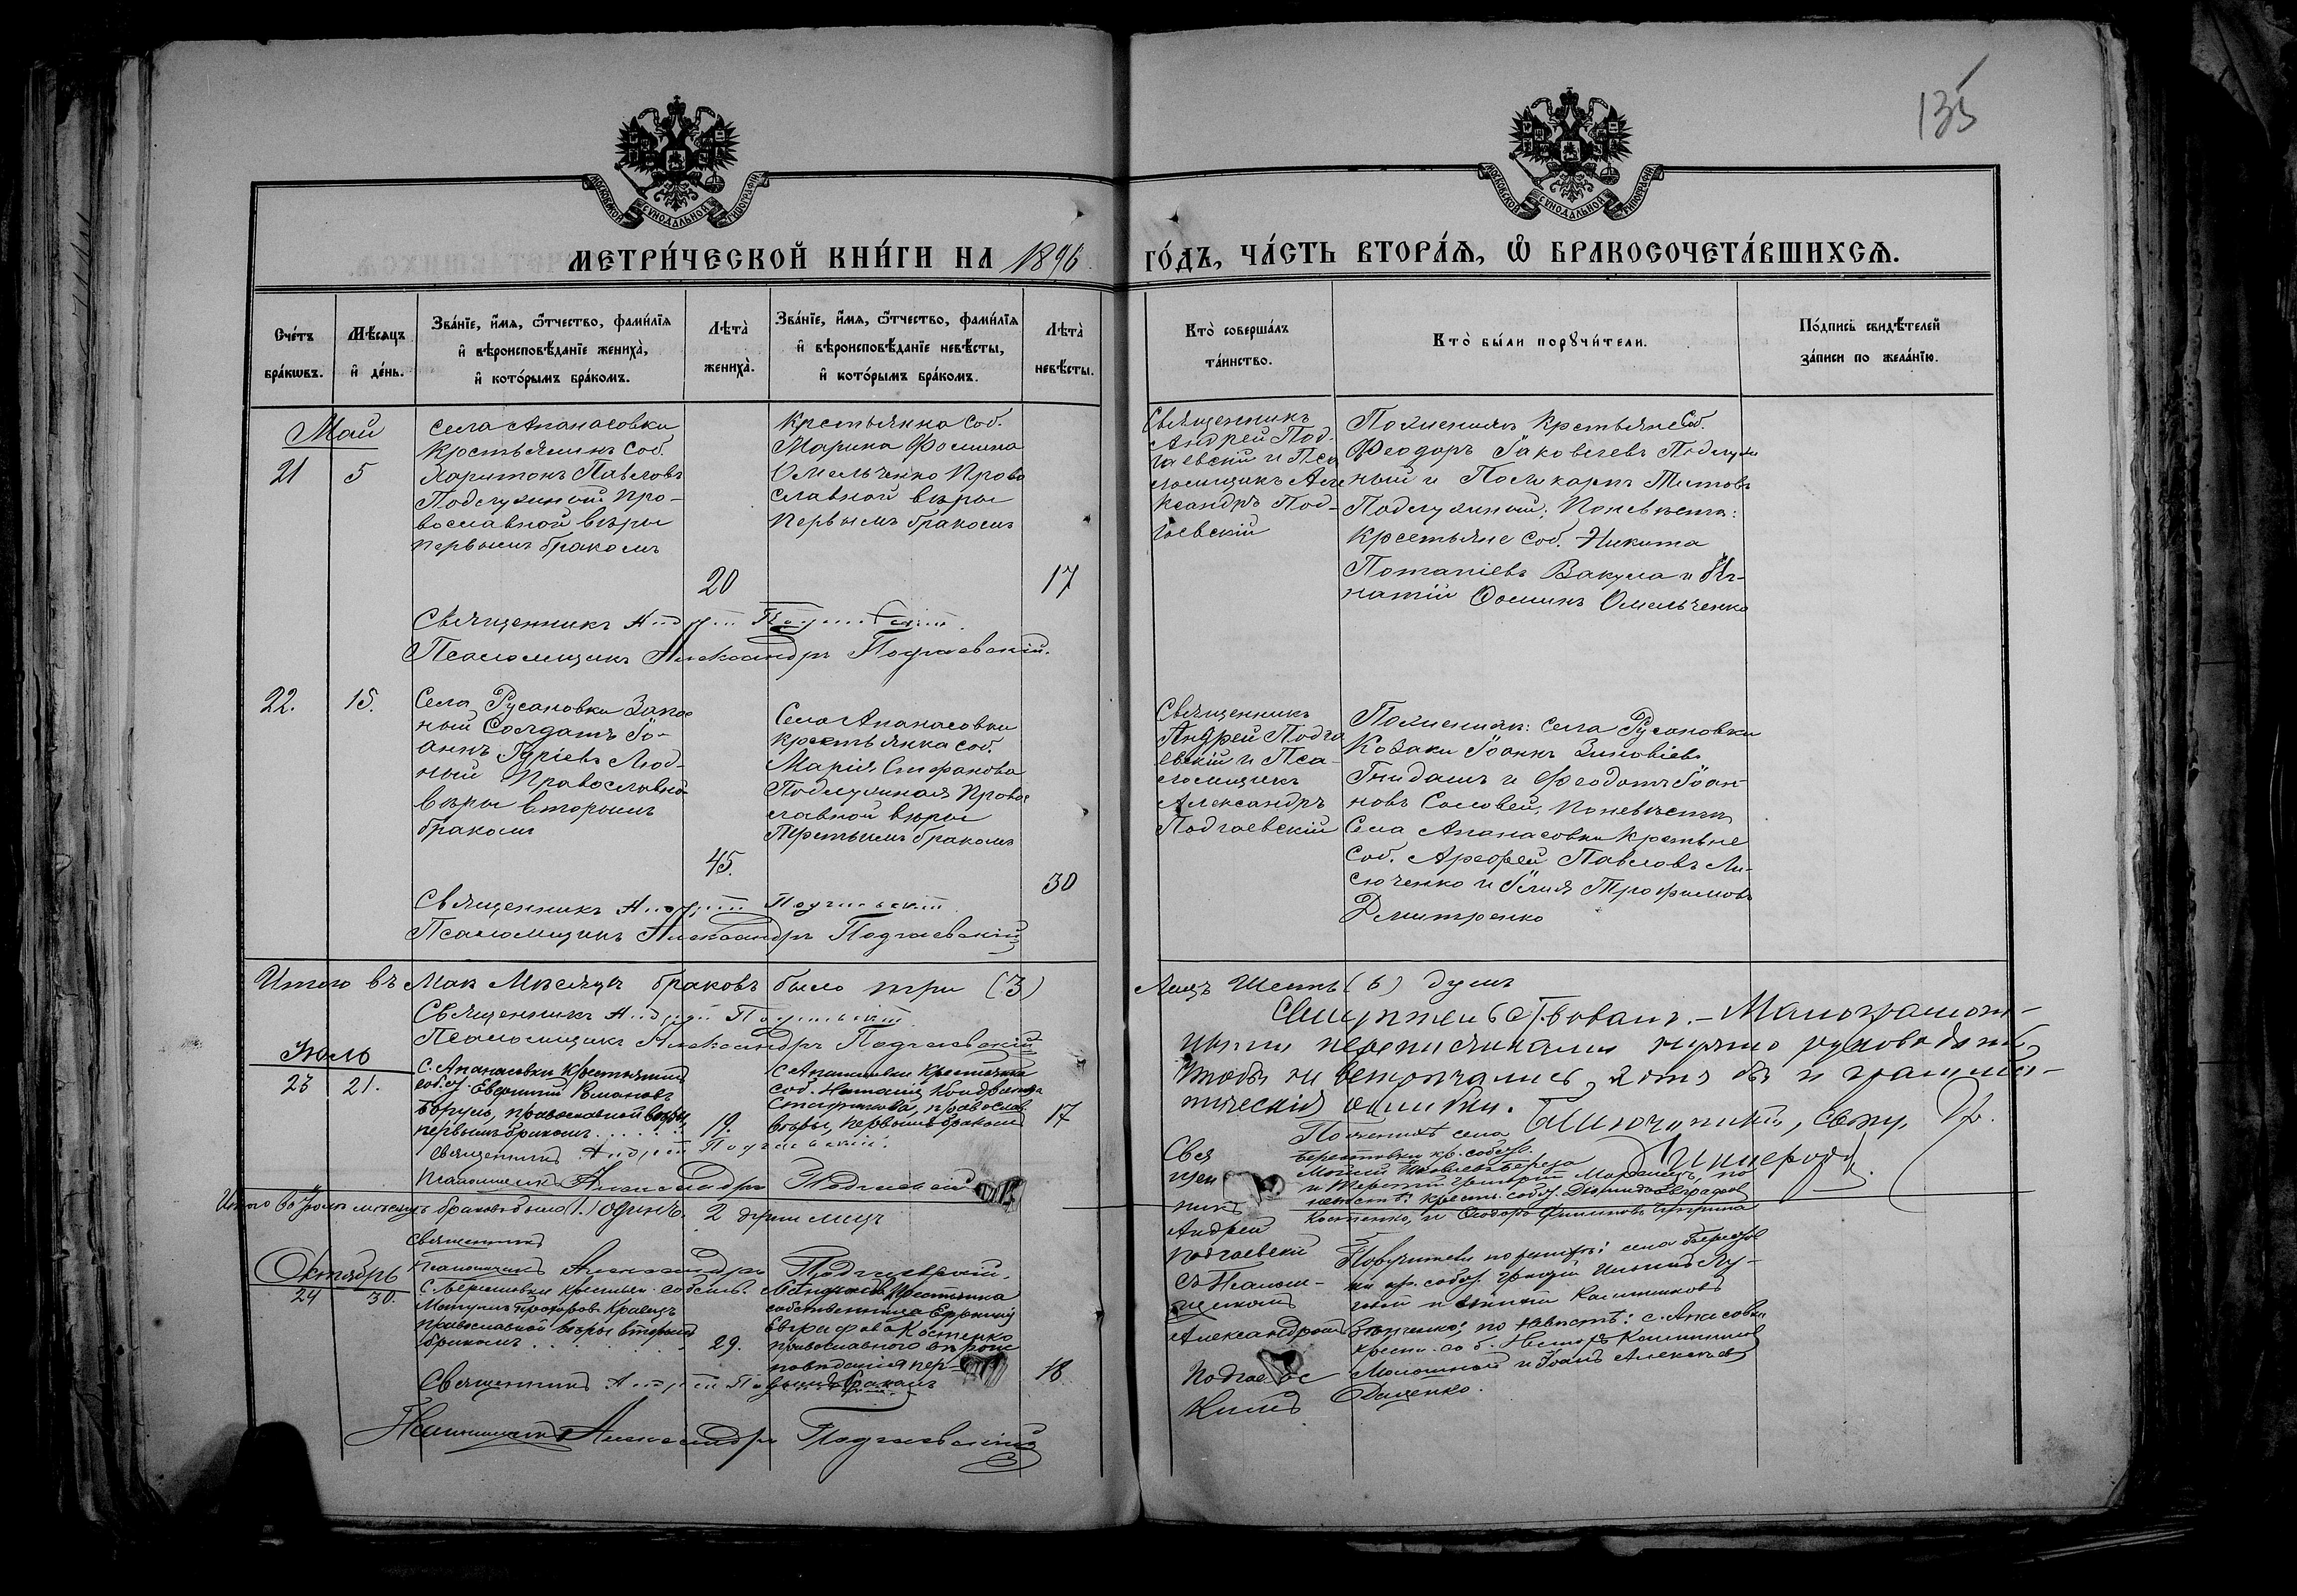 135
МОСКОВСКОЙ СУНОДАЛЬНОЙ ТИПОГРАФІИ
МОСКОВСКОЙ СУНОДАЛЬНОЙ ТИПОГРАФІИ
МЕТРИ́ЧЕСКОЙ КНИ́ГИ НА 1896
ГО́ДЪ, ЧА́СТЬ ВТОРА́Ѧ, Ѽ БРАКОСОЧЕТА́ВШИХСѦ.
Сче́тъ бра́кѡвъ.
Мѣ́сѧцъ и҆ де́нь.
Зва́нїе, и҆́мѧ, ѻ҆́тчество, фами́лїѧ
и҆ вѣроисповѣ́данїе жениха̀,
и҆ кото́рымъ бра́комъ.
Лѣта̀ жениха̀.
Зва́нїе, и҆́мѧ, ѻ҆́тчество, фами́лїѧ
и҆ вѣроисповѣ́данїе невѣ́сты,
и҆ кото́рымъ бра́комъ.
Лѣта̀ невѣ́сты.
Кто̀ соверша́лъ та́инство.
Кто̀ бы́ли порꙋчи́тели.
По́дпись свидѣ́телей
за́писи по жела́нїю.
Май
21 5
села Апанасовки
Крестьянинъ Соб.
Харитонъ Павловъ
Подлужный Пра-
вославной вѣры
первымъ бракомъ
20
Крестьянка Соб.
Марина Фомина
Омельченко Право
славной вѣры
Первымъ бракомъ
17
Священникъ
Андрей Под-
гаевскій и Пса
ломщикъ Але
ксандръ Под-
гаевскій
Поженихѣ Крестьяне Соб.
Феодоръ Іаковлевъ Подлуж
ный и Поликарпъ Титовъ
Подлужный; Поневѣстѣ:
Крестьяне Соб. Никита
Потапіевъ Вакула и Иг-
натій Фоминъ Омельченко
Священникъ Андрей Подгаевскій.
Псаломщикъ Александръ Подгаевскій.
22. 15.
Села Русановки Запас
ный Солдатъ Іо-
аннъ Гуріевъ Люд-
ный Православной
вѣры вторымъ
бракомъ
45.
Села Апанасовки
Крестьянка соб.
Марія Стефанова
Подлужная Право
славной вѣры
Третьимъ бракомъ
30
Священникъ
Андрей Подга
евскій и Пса-
ломщикъ
Александръ
Подгаевскій
Поженихѣ: села Русановки
Козаки Іоаннъ Зиновіевъ
Гнидашъ и Феодотъ Іоан-
новъ Соловей, поневѣстѣ
Села Апанасовки Крестьяне
Соб. Арефей Павловъ Ли-
сюченко и Илія Трофимовъ
Дмитренко
Священникъ Андрей Подгаевскій
Псаломщикъ Александръ Подгаевскій
Итого въ Маѣ Мѣсяцѣ браковъ было три (3)
Лицъ Шесть (6) душъ
Священникъ Андрей Подгаевскій
Псаломщикъ Александръ Подгаевскій
Свидѣтельствовалъ. – Малограмот-
ными переписчиками нужно руководить,
чтобы не встрѣчались и грамма-
тическія ошибки.
Іюль
23 21.
С. Апанасовки крестьянинъ
соб. Евфимій Романовъ
православной вѣры,
первымъ бракомъ
19.
С. Апанасовки Крестьянка
соб. Наталія Кондратова
православ.
вѣры, первымъ бракомъ
17
Свя
щен
никъ
Андрей
Подгаевскій
съ Псалом-
щикомъ
Александромъ
Подгаевс
кимъ
По женихѣ села
Берестовки кр. соб.
невѣстѣ: крест. соб.
Костенко, и Феодоръ
Священникъ Андрей Подгаевскій.
Псаломщикъ Александръ Подгаевскій
Итого въ Іюлѣ мѣсяцѣ браковъ было 1. /одинъ/. 2 лицъ
Священникъ
Псаломщикъ Александръ Подгаевскій.
Октябрь
24 30.
С. Берестовки крестьян. собств.
Прохоровъ Кравецъ
православной вѣры вторымъ
бракомъ
29.
крестьянка
собственница Евфимія
Евграфова Костенко
православнаго вѣроис
повѣданія пер-
вымъ бракомъ
18
Поручители по женихѣ: села Берестов
ки кр. соб.
по невѣстѣ: с. Апасовки
крест. соб. Несторъ
и Іоаннъ Алексѣевъ
Даценко.
Священникъ Андрей Подгаевскій
Псаломщикъ Александръ Подгаевскій